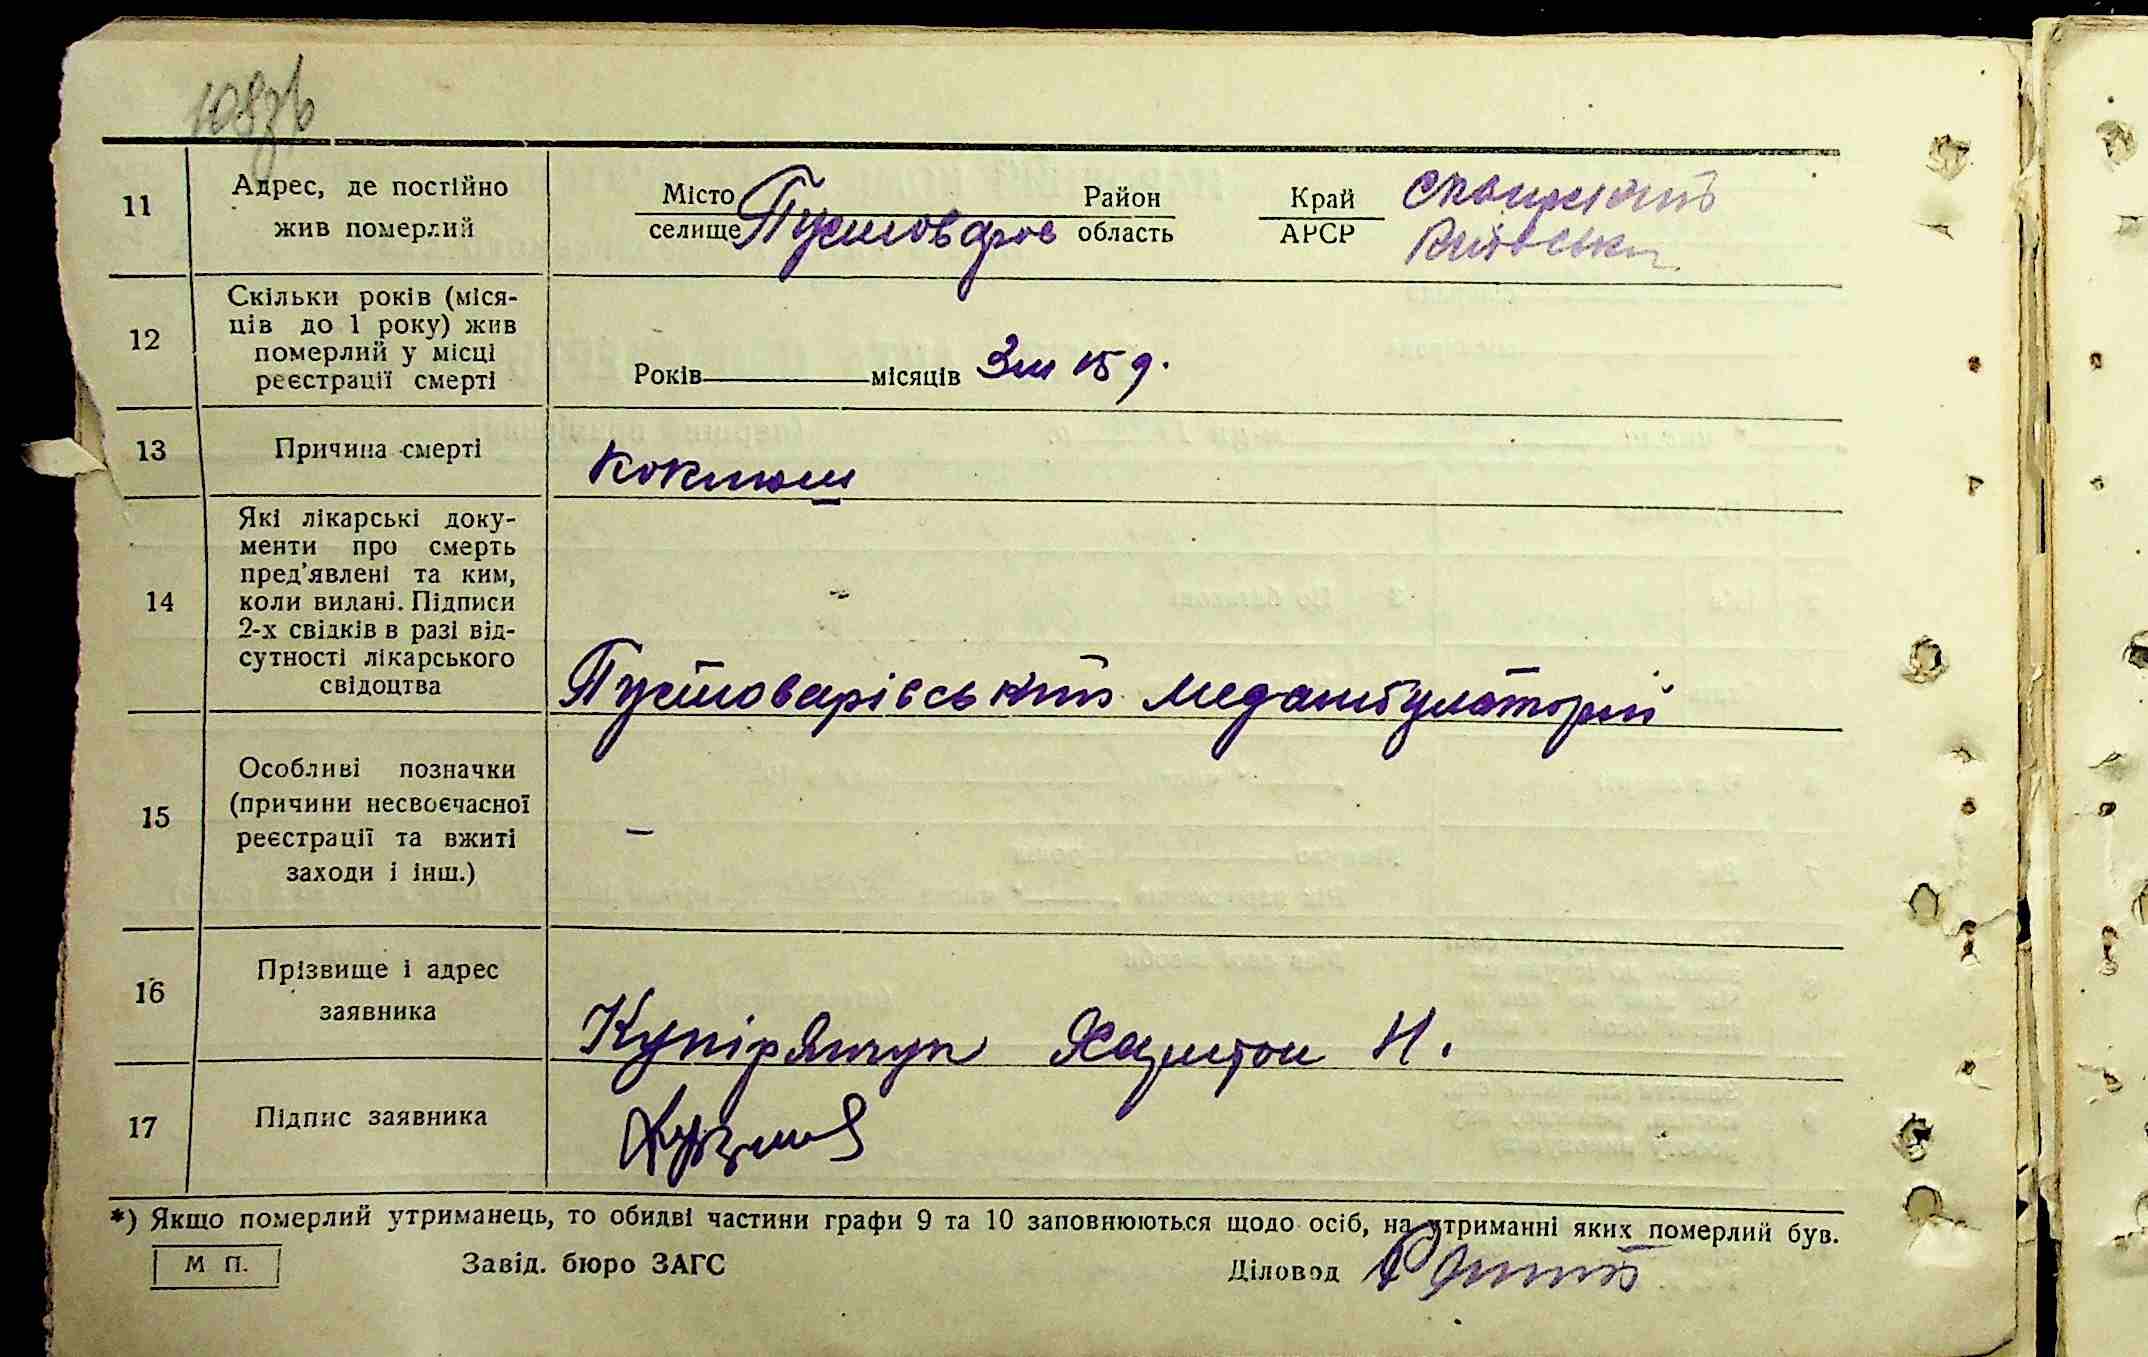 108зв
11 Адрес, де постійно жив померлий
Місто селище Пустоваров Район область Край АРСР
Київськ
12 Скільки років (міся-
ців до 1 року) жив
померлий у місці
реєстрації смерті
Років місяців 3 м 15 д.
13 Причина смерті Коклюш
14 Які лікарські доку-
менти про смерть
пред'явлені та ким,
коли видані. Підписи
2-х свідків в разі від-
сутності лікарського
свідоцтва
Пустоварівський медамбулаторій
15 Особливі позначки
(причини несвоєчасної
реєстрації та вжиті
заходи і інш.)
—
16 Прізвище і адрес
заявника
Купірянчук Харитон Н.
17 Підпис заявника
*) Якщо померлий утриманець, то обидві частини графи 9 та 10 заповнюються щодо осіб, на утриманні яких померлий був.
М П. Завід. бюро ЗАГС Діловод